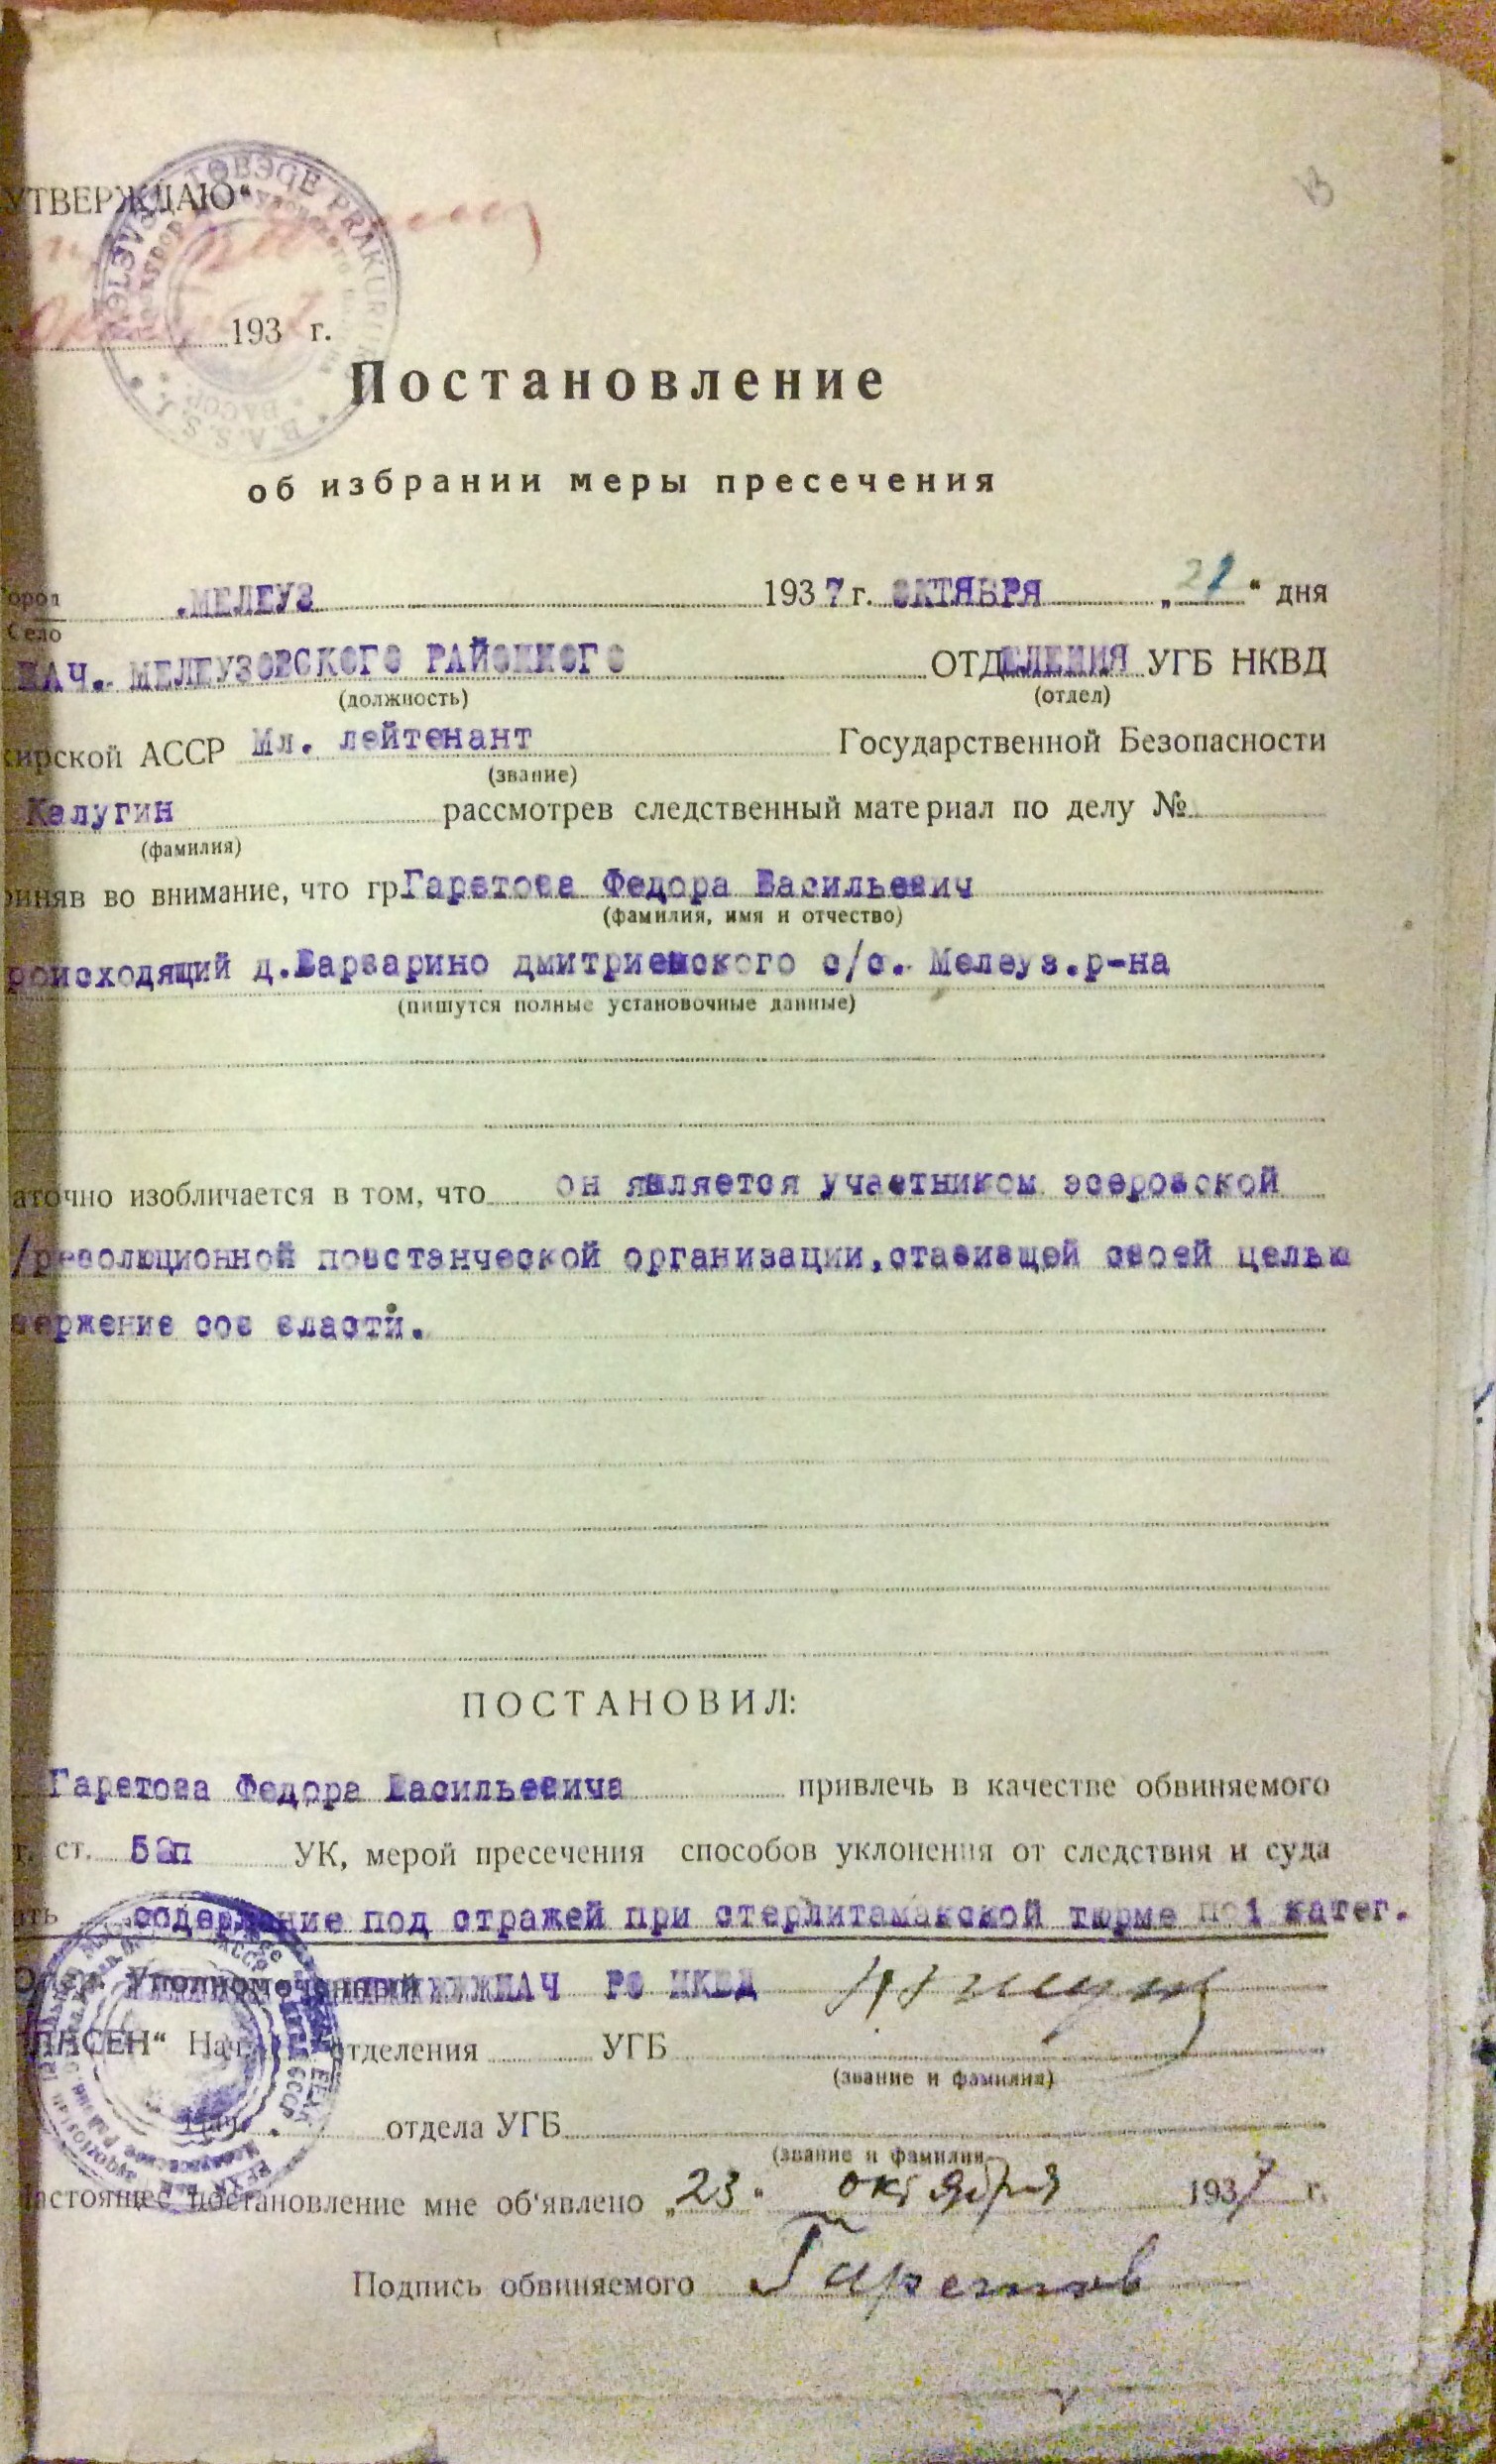 УТВЕРЖДАЮ“
193 г.
Постановление
об избрании меры пресечения
ород .МЕЛЕУЗ 1937 г. ОКТЯБРЯ „21“ дня
Село
НАЧ. МЕЛЕУЗОВСКОГО РАЙОННОГО ОТДЕЛЕНИЯ УГБ НКВД
(должность) (отдел)
кирской АССР Мл. лейтенант Государственной Безопасности
(звание)
Калугин рассмотрев следственный материал по делу №
(фамилия)
риняв во внимание, что гр.Гаретова Федора Васильевич
(фамилия, имя и отчество)
роисходящий д.Варварино дмитриевского с/с. Мелеуз.р-на
(пишутся полные установочные данные)
аточно изобличается в том, что он является участником эсеровской
/революционной повстанческой организации,ставившей своей целью
вержение сов власти.
ПОСТАНОВИЛ:
Гаретова Федора Васильевича привлечь в качестве обвиняемого
т. ст. УК, мерой пресечения способов уклонения от следствия и суда
ать содержание под стражей при стерлитамакской тюрме по 1 катег.
Опер. Уполномоченный НАЧ РО НКВД
ЛАСЕН“ Нач. отделения УГБ
(звание и фамилия)
Нач. отдела УГБ
(звание и фамилия
настоящее постановление мне об'явлено „23“ октября 1937 г.
Подпись обвиняемого Гаретов